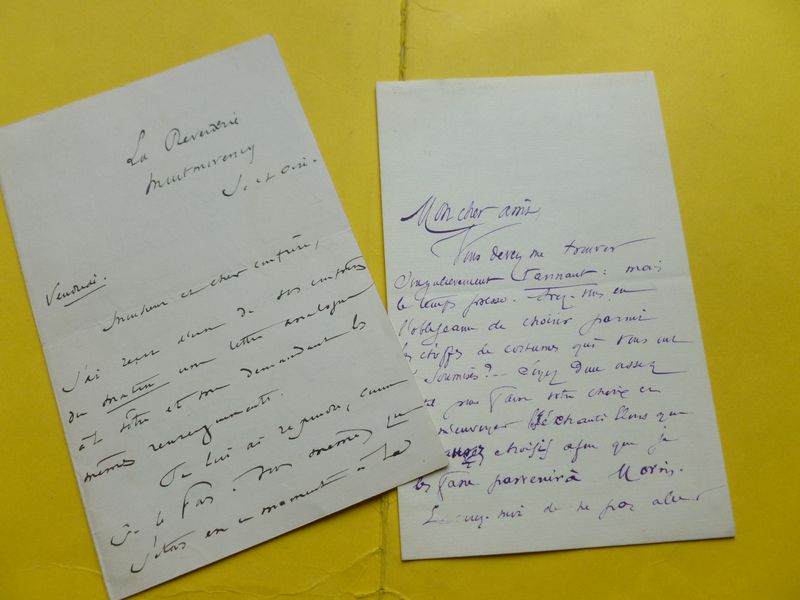 La Reverdérie
Montmorency
S. et Oise.
Vendredi.
Monsieur et cher confrère,
J'ai reçu d'un de vos confrères
du Matin une lettre analogue
à la vôtre et me demandant les
mêmes renseignements.
Je lui ai répondu, comme
je le fais
j'étais en ce moment à la
Mon cher ami,
Vous devez me trouver
singulièrement tannant : mais
le temps presse. Avez-vous eu
l'obligeance de choisir parmi
les étoffes de costumes qui vous ont
soumises? Soyez donc assez
pour faire votre choix et
m'envoyer les échantillons que
choisis afin que je
les fasse parvenir à Morin.
Excusez-moi de ne pas aller